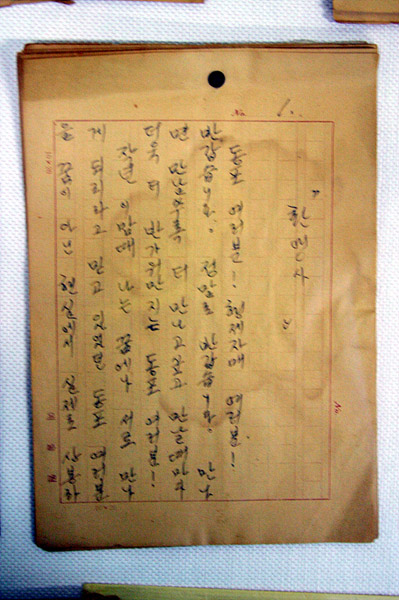 No. 1.
"환영사"
동포 여러분! 형제자매 여러분!
반갑습니다. 정말로 반갑습니다. 만나
면 만날수록 더 만나고싶고 만날때마다
더욱 더 반가워만지는 동포 여러분!
작년 이맘때 나는 꿈에나 서로 만나
게 되리라고 믿고 있었던 동포 여러분
을 꿈이 아닌 현실에서 실제로 상봉하
No.